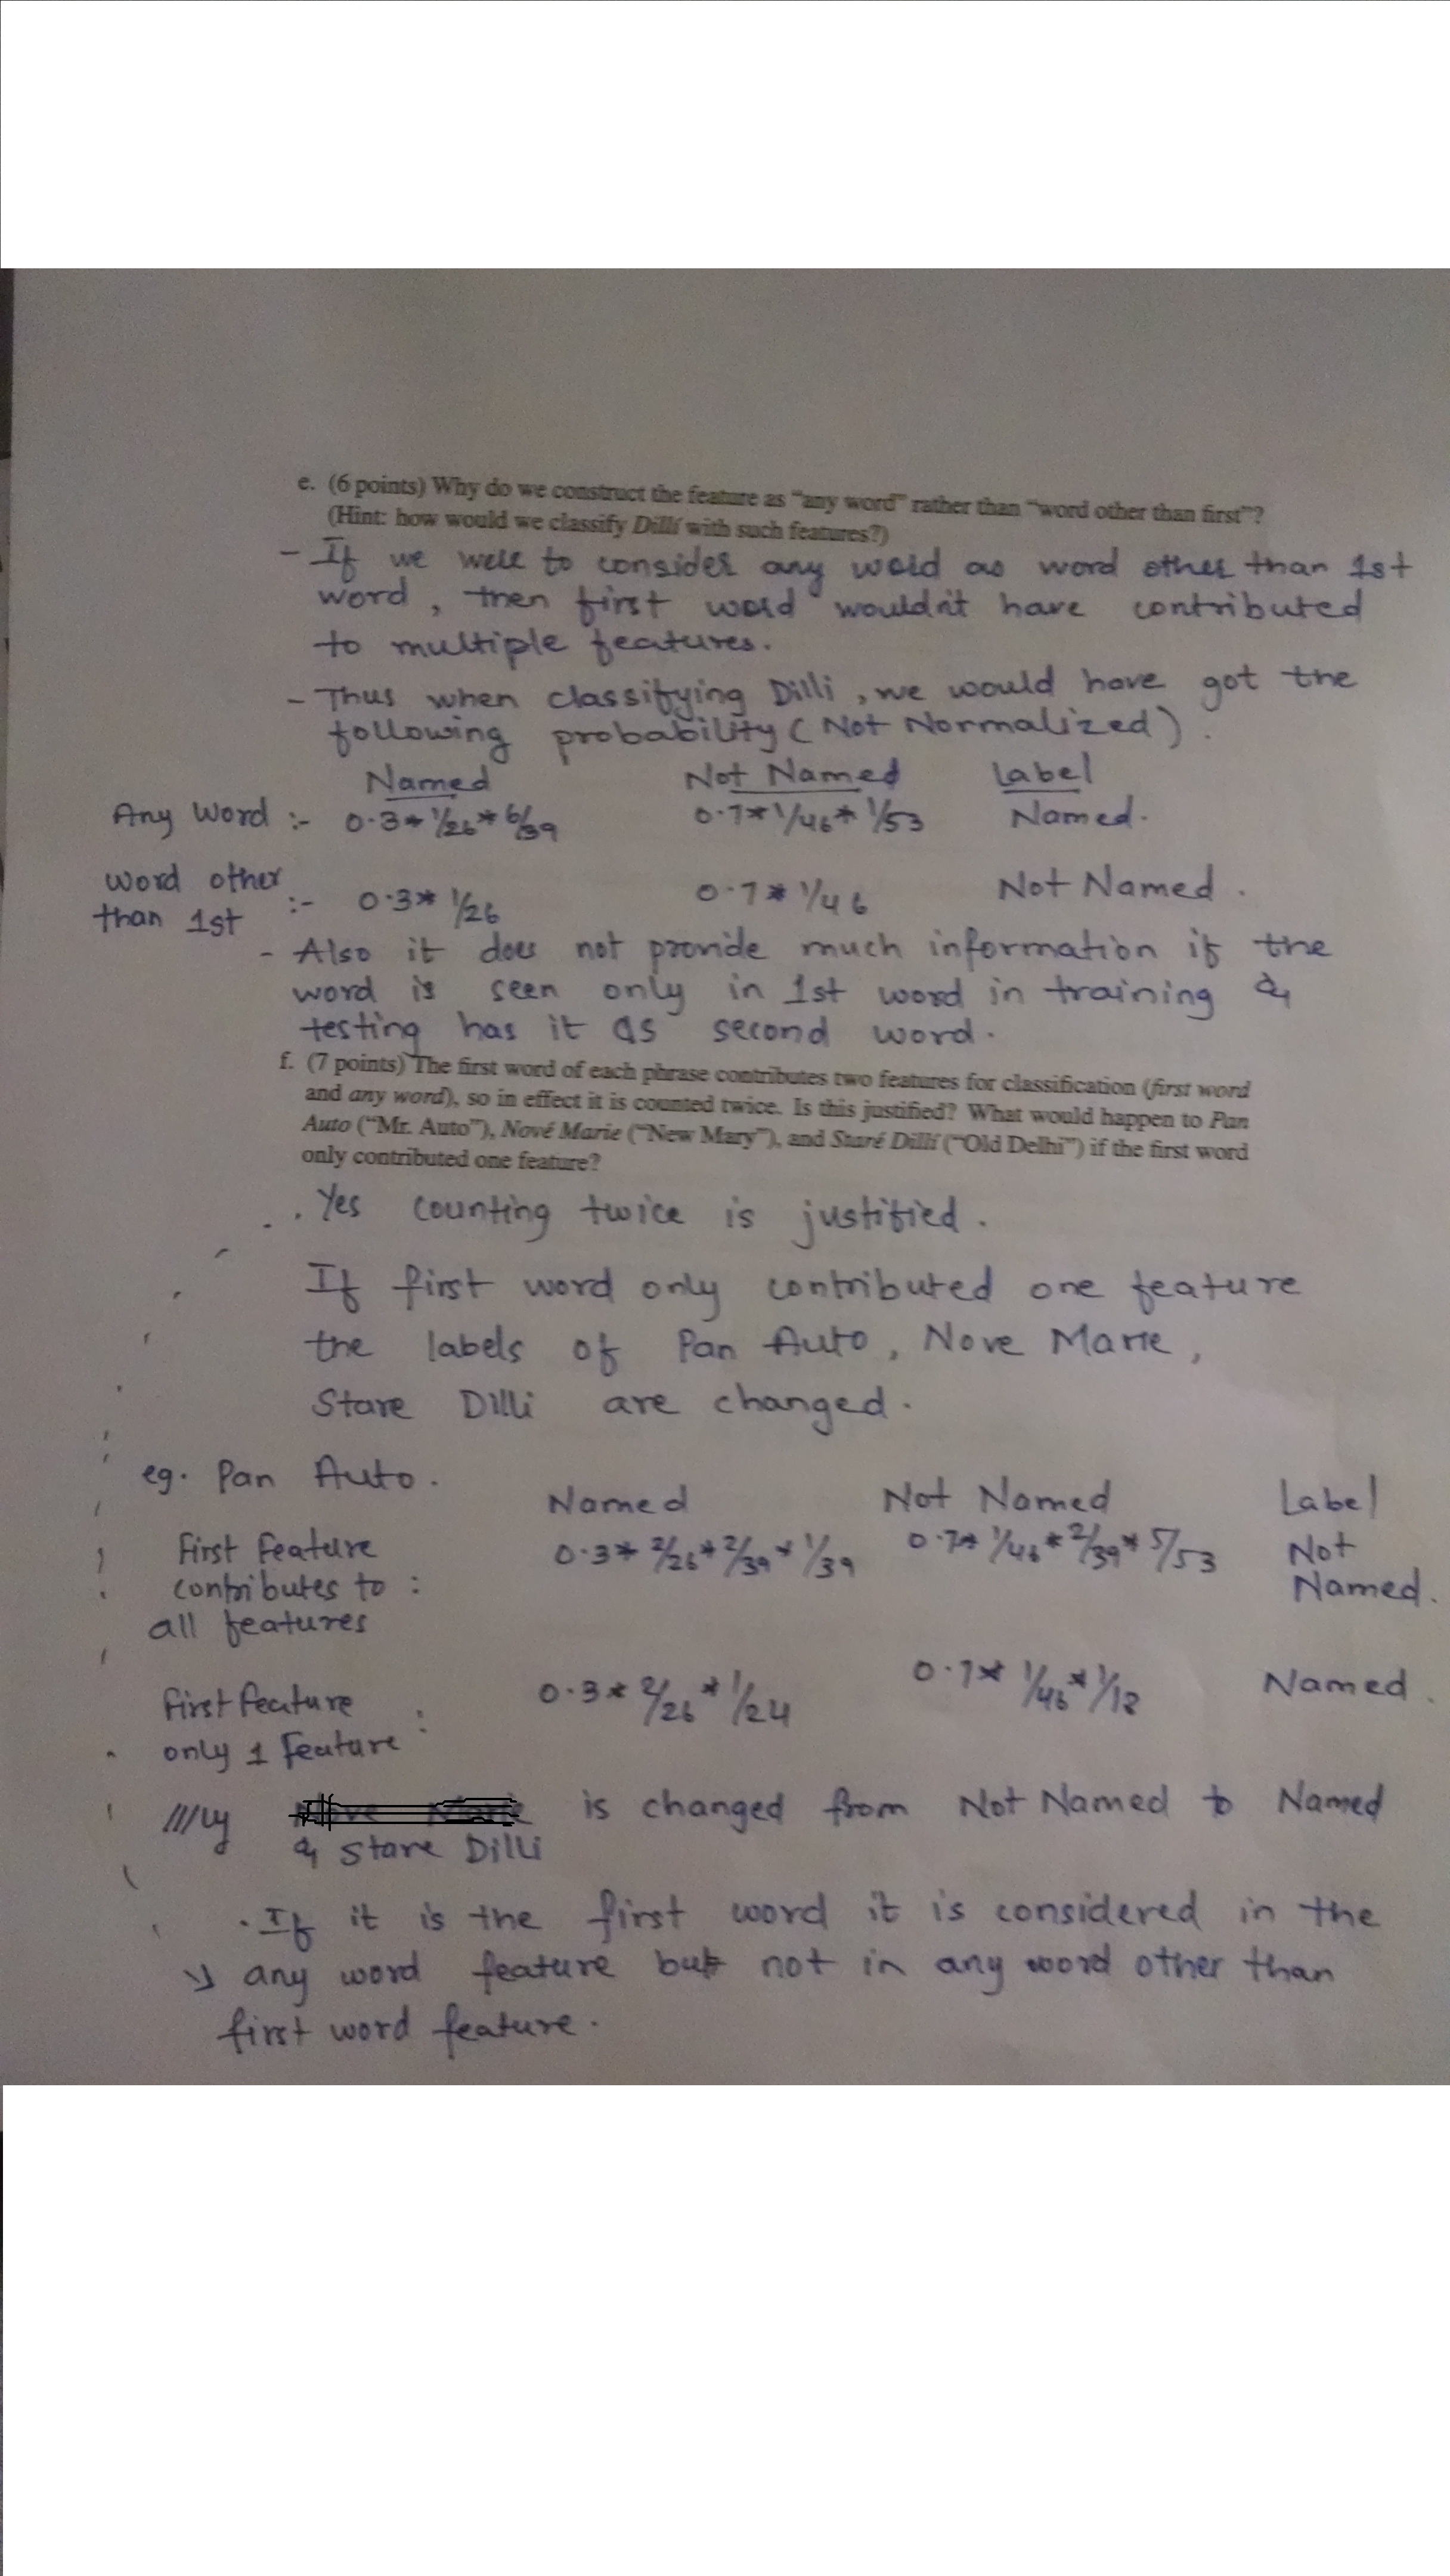 e. (6 points) Why do we construct the feature as "any word" rather than "word other than first"?
(Hint: how would we classify Dillí with such features?)
- If we were to consider any word as word other than 1st
word, then first word wouldn't have contributed
to multiple features.
- Thus when classifying Dilli, we would have got the
following probability (Not Normalized).
Named Not Named Label
Any Word :- 0.3* 1/26* 6/39 0.7* 1/46* 1/53 Named.
word other
than 1st :- 0.3* 1/26 0.7* 1/46 Not Named.
- Also it does not provide much information if the
word is seen only in 1st word in training &
testing has it as second word.
f. (7 points) The first word of each phrase contributes two features for classification (first word
and any word), so in effect it is counted twice. Is this justified? What would happen to Pan
Auto ("Mr. Auto"), Nové Marie ("New Mary"), and Staré Dillí ("Old Delhi") if the first word
only contributed one feature?
. Yes counting twice is justified.
If first word only contributed one feature
the labels of Pan Auto, Nove Marie,
Stare Dilli are changed.
eg. Pan Auto.
Named Not Named Label
First Feature 0.3* 2/26* 2/39* 1/39 0.7* 1/46* 2/39* 5/53 Not
contributes to : Named.
all features
First feature : 0.3* 2/26* 1/24 0.7* 1/46* 1/18 Named.
only 1 Feature
|||ly Nove Marie is changed from Not Named to Named
& Stare Dilli
. If it is the first word it is considered in the
any word feature but not in any word other than
first word feature.